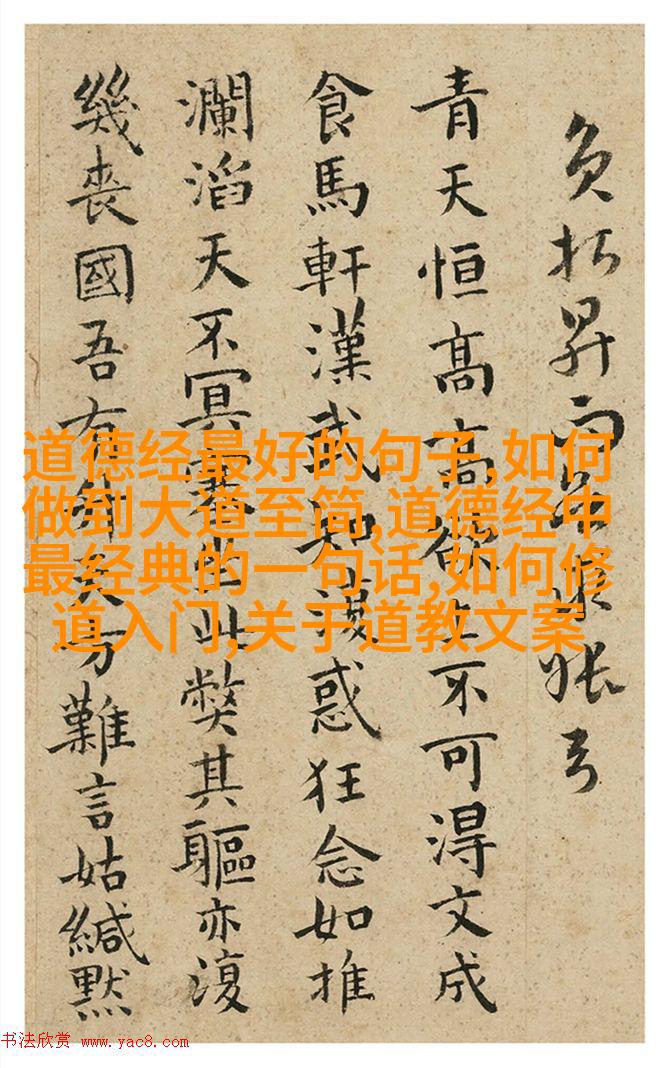 昇而
青天恒高高欲上不可得文成
食馬軒漢武知惑狂念如推
瀾滔天不冥此弊其軀亦復
幾喪國吾有升天方難言姑緘默
道德经最好的句子,如何
做到大道至简,道德经中
最经典的一句话,如何修
道入门,关于道教文案
书法欣赏 www.yac8.com